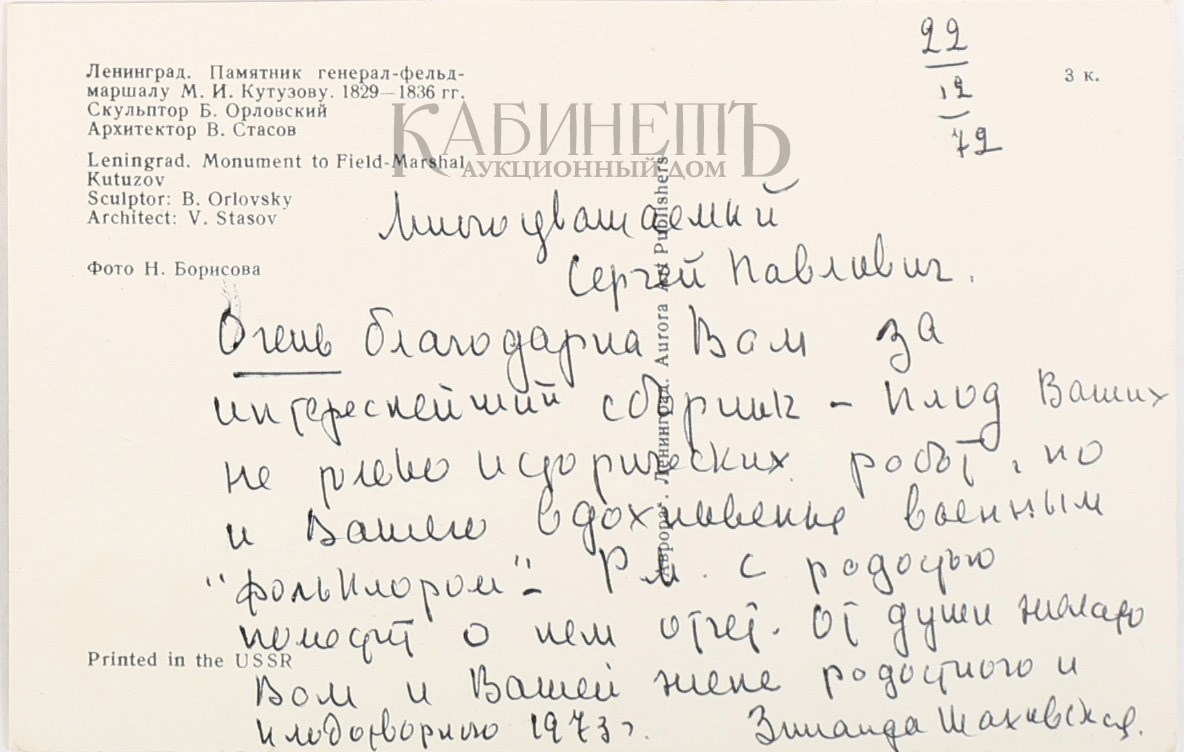 Ленинград. Памятник генерал-фельд-
маршалу М. И. Кутузову. 1829—1836 гг.
Скульптор Б. Орловский
Архитектор В. Стасов
Leningrad. Monument to Field-Marshal
Kutuzov
Sculptor: B. Orlovsky
Architect: V. Stasov
Фото Н. Борисова
3 к.
22
12
72
КАБИНЕТЪ
АУКЦИОННЫЙ ДОМ
Многоуважаемый
Сергей Павлович.
Очень благодарна Вам за
интереснейший сборник – плод Ваших
не только исторических работ, но
и Вашего вдохновенья военным
"фольклором" – Р.М. с радостью
поместит о нем отчет. От души желаю
Вам и Вашей жене радостного и
плодотворного 1973 г.
Зинаида Шаховская.
"Аврора". Ленинград. Aurora Art Publishers
Printed in the USSR